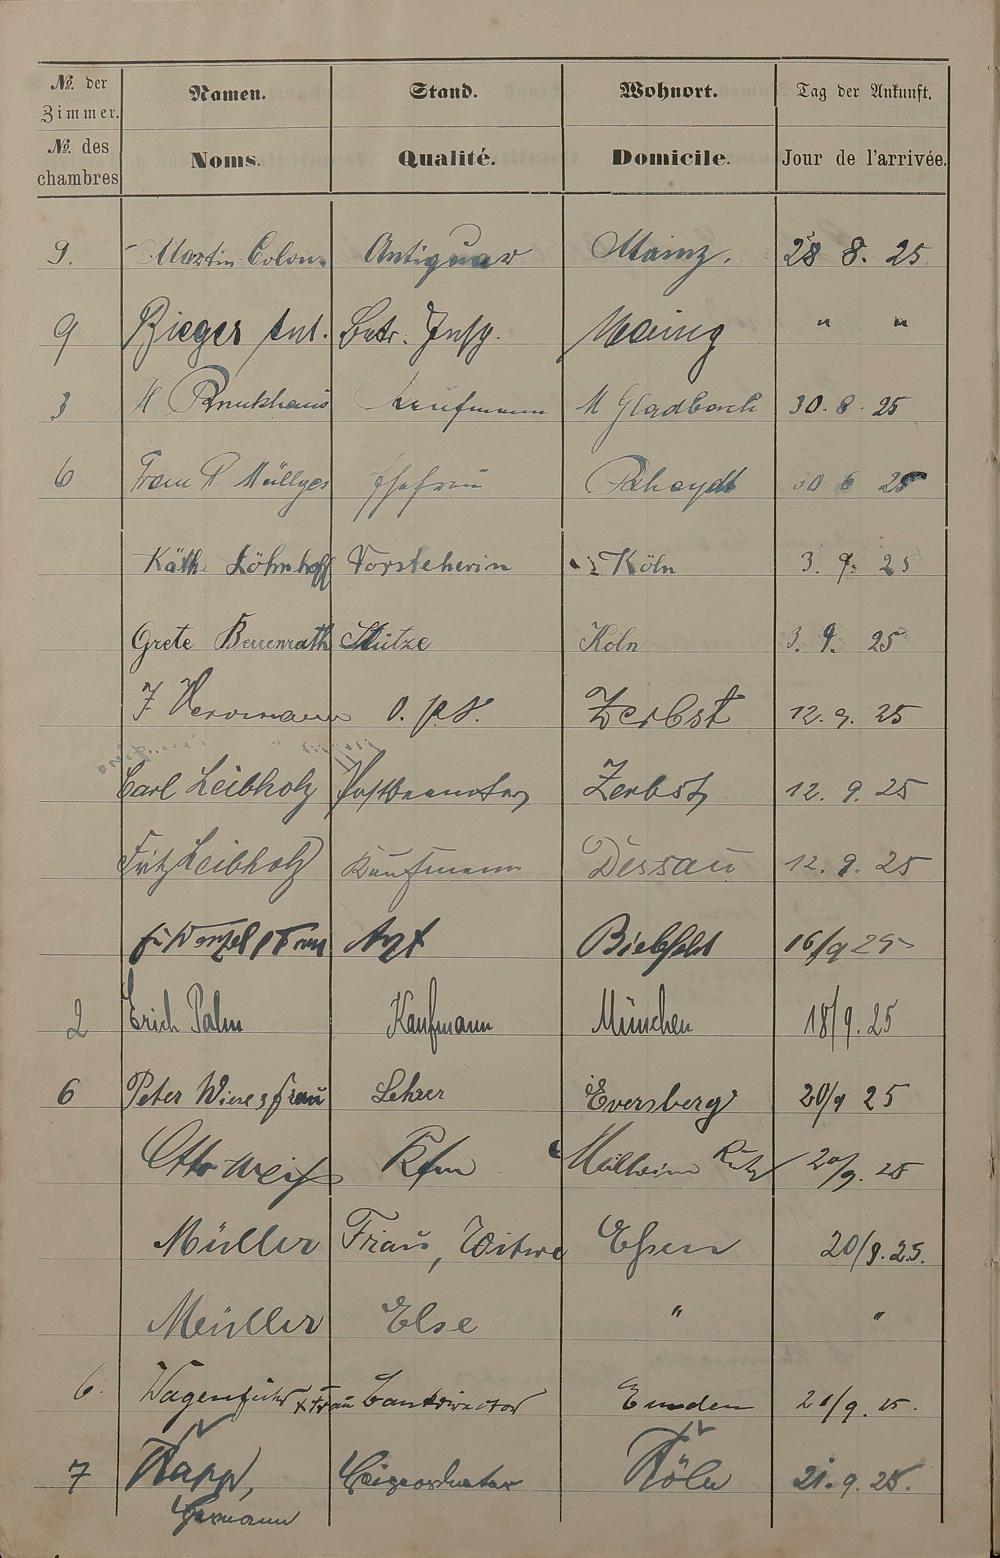 No. der Zimmer. Namen. Stand. Wohnort. Tag der Ankunft.
No. des chambres Noms. Qualité. Domicile. Jour de l'arrivée.
9. Martin Colon. Antiquar Mainz. 28 8. 25
9 Bieger Ant. Betr. Insp. Mainz " "
3 H Kaufmann M Gladbach 30. 8. 25
6 Frau R Müllges Ehefrau Rheydt 30 8 25
Käth. Löhnhoff Vorsteherin Köln 3. 9. 25
Grete Berrenrath Stütze Köln 3. 9. 25
F Herrmann O. P. S. Zerbst 12. 9. 25
Carl Leibholz Postbeamter Zerbst 12. 9. 25
Fritz Leibholz Kaufmann Dessau 12. 9. 25
Frau Arzt Bielefeld 16/9 25
2 Erich Palm Kaufmann München 18/9. 25
6 Peter Wiese & Frau Lehrer Eversberg 20/9 25
Otto Weiß Kfm Mülheim Ruhr 20/9. 25
Müller Frau, Witwe Essen 20/9. 25.
Müller Else " "
6. Wagenführ + Frau Bankdirector Emden 21/9. 25.
7 Rapp, Beigeordneter Köln 21. 9. 25.
Hermann